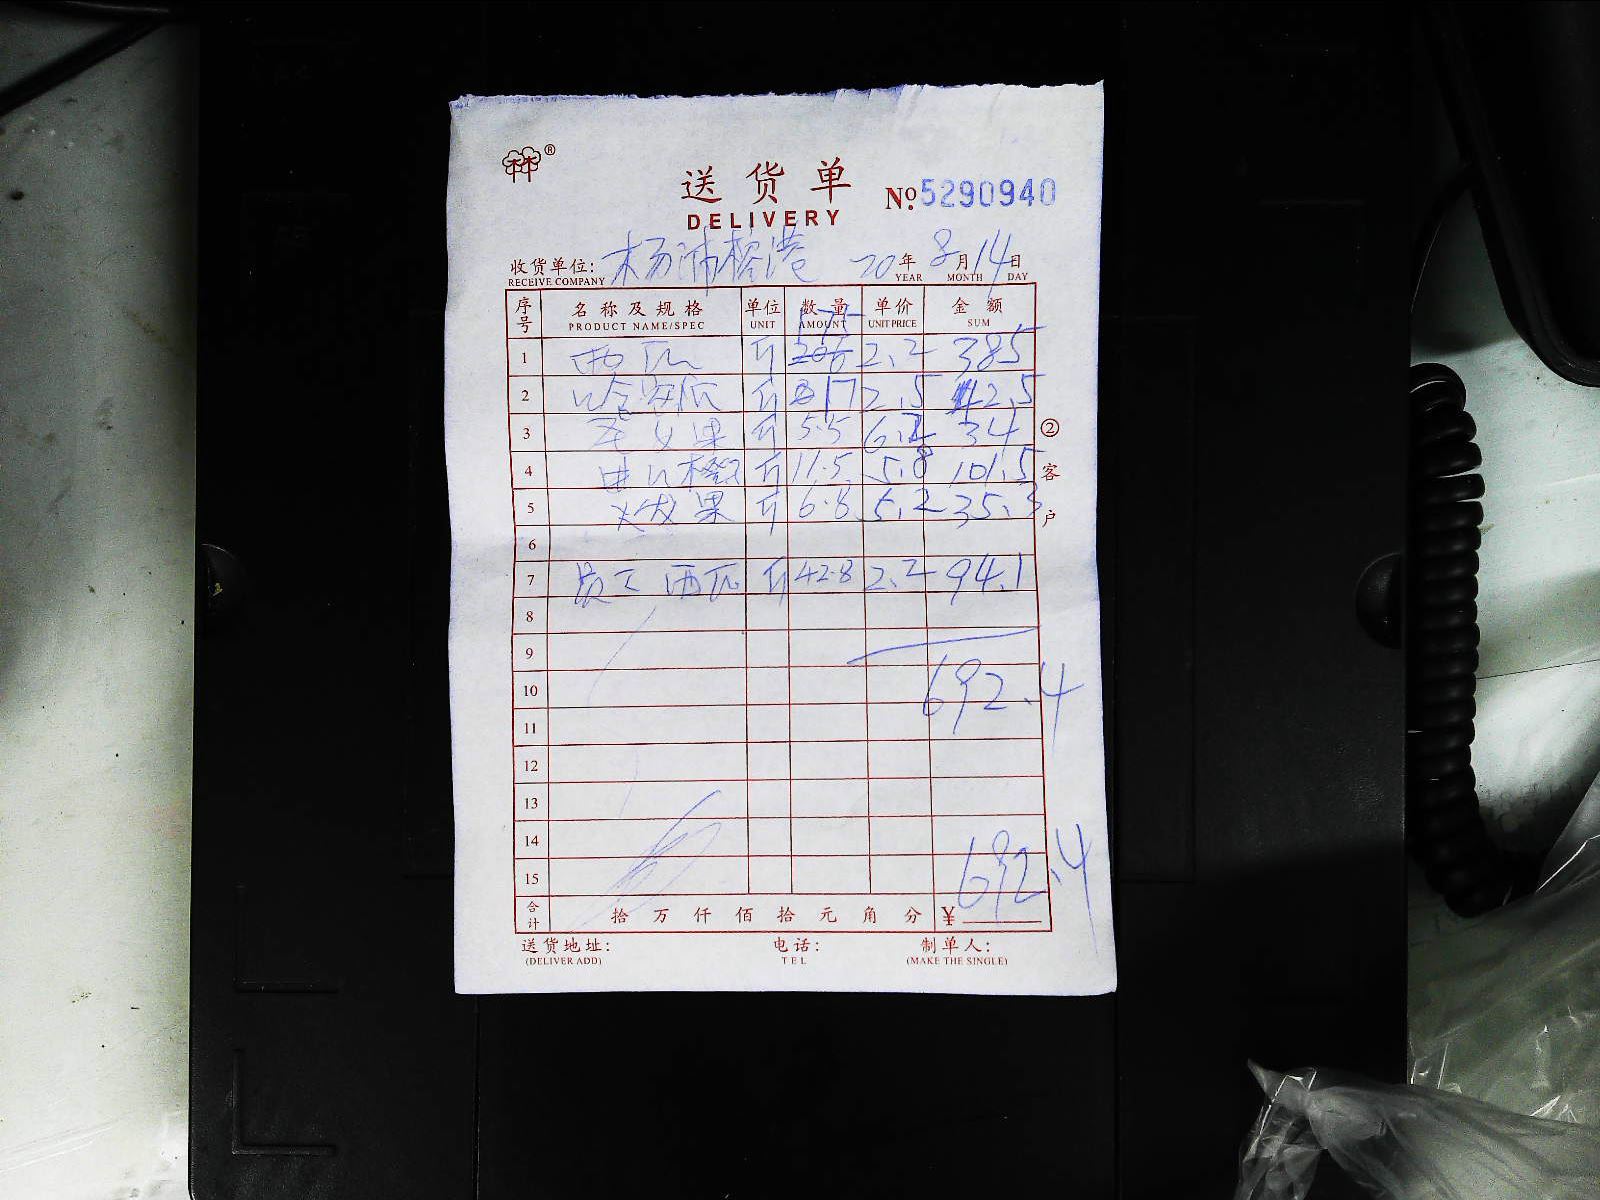 ®
送货单
DELIVERY
№ 5290940
收货单位: 20年 8月 14日
RECEIVE COMPANY YEAR MONTH DAY
序号 名称及规格 单位 数量 单价 金额
PRODUCT NAME/SPEC UNIT AMOUNT UNIT PRICE SUM
1 西瓜 斤 175 2.2 385
2 哈密瓜 斤 17 2.5 42.5
3 圣女果 斤 5.5 6.2 34
4 进口橙 斤 11.5 5.8 101.5
5 火龙果 斤 6.8 5.2 35.3
6
7 员工 西瓜 斤 42.8 2.2 94.1
8
9
10 692.4
11
12
13
14
15 692.4
合计 拾 万 仟 佰 拾 元 角 分 ¥
送货地址: 电话: 制单人:
(DELIVER ADD) TEL (MAKE THE SINGLE)
② 客户